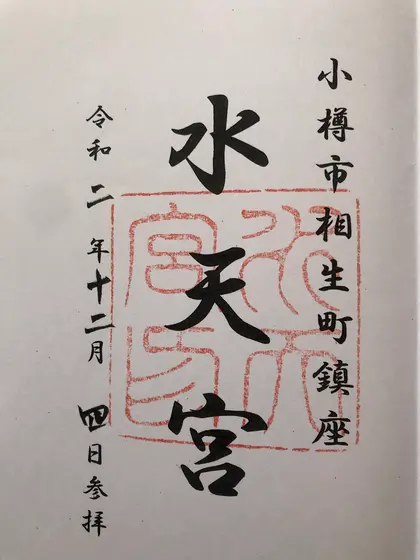 小樽市相生町鎮座
水天宮
令和二年十二月四日参拝
水天宮印